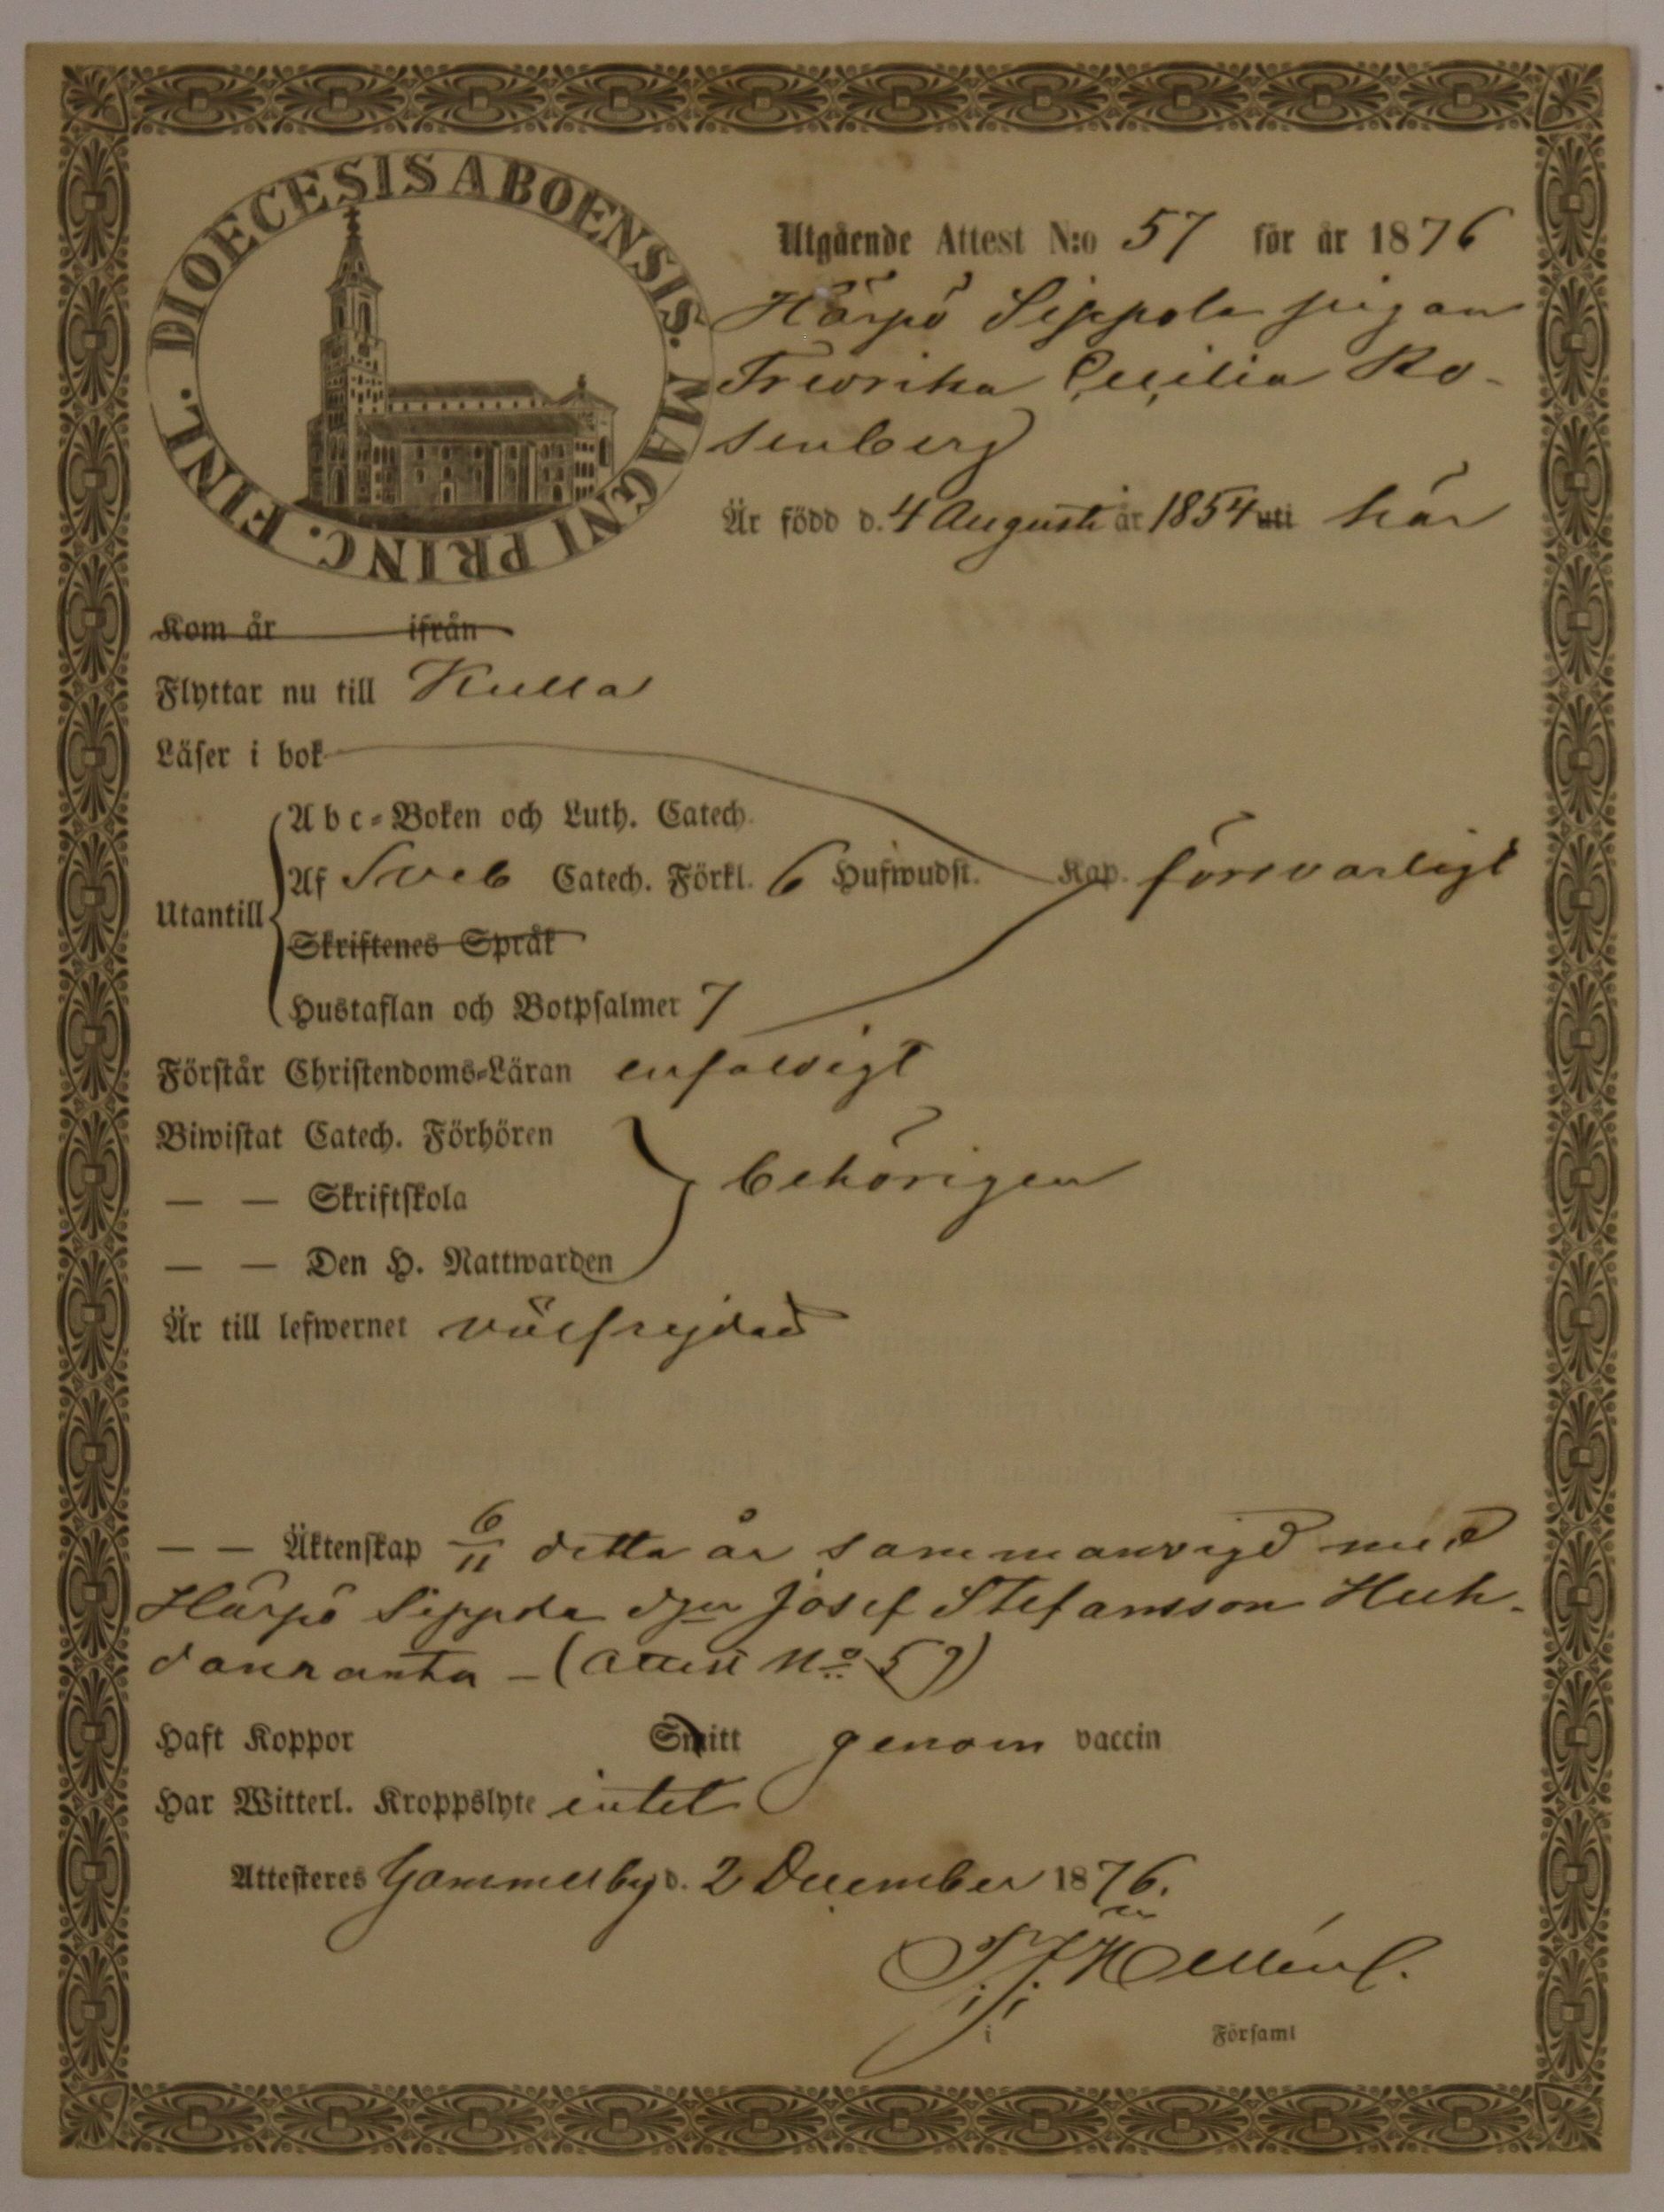 DIOECESIS ABOENSIS. MAGNI PRINC. FINL.
Utgående Attest N:o 57 för år 1876
Härpö Sippola pigan
Fredrika Cecilia Ro-
senberg
Är född d. 4 Augusti år 1854 uti här
Kom år ifrån
Flyttar nu till Kulla
Läser i bok
Abc-Boken och Luth. Catech.
Af Sveb Catech. Förkl. 6 Hufwudst. Kap. försvarligt
Utantill
Skriftenes Språk
Hustaflan och Botpsalmer 7
Förstår Christendoms-Läran enfaldigt
Biwistat Catech. Förhören
— — Skriftskola behörigen
— — Den H. Nattwarden
Är till lefwernet välfrejdad
— — Äktenskap 6/11 detta år sammanvigd med
Härpö Sippola Josef Stefansson Huh-
danranta – (Attest No 59)
Haft Koppor Smitt genom vaccin
Har Witterl. Kroppslyte intet
Attesteres Gammelby d. 2 December 1876.
i Församl